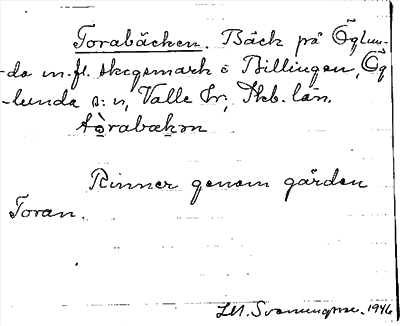 Torabäcken. Bäck på Öglun-
da m.fl. skogsmark å Billingen, Ög
-lunda s:n, Valle hr, Skb. län.
tòrabækən
Rinner genom gården
Toran.
1946